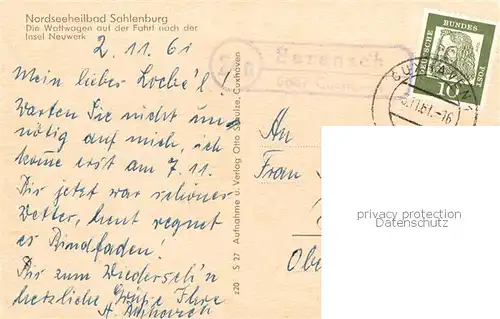 Nordseeheilbad Sahlenburg
Die Wattwagen auf der Fahrt nach der
Insel Neuwerk
2.11.61
Mein lieber
Warten Sie nicht un
nötig auf mich, ich
komme erst am 7.11.
Bis jetzt war schönes
Wetter, heut regnet
es Bindfaden!
Bis zum Wiederseh'n
herzliche Grüße Ihre
z20 S 27 Aufnahme u. Verlag Otto Schulze, Cuxhaven
Berensch
über Cuxh
DEUTSCHE BUNDESPOST
10
CUXHAVEN
.11.61.-16
An
Frau
Obe
privacy protection
Datenschutz